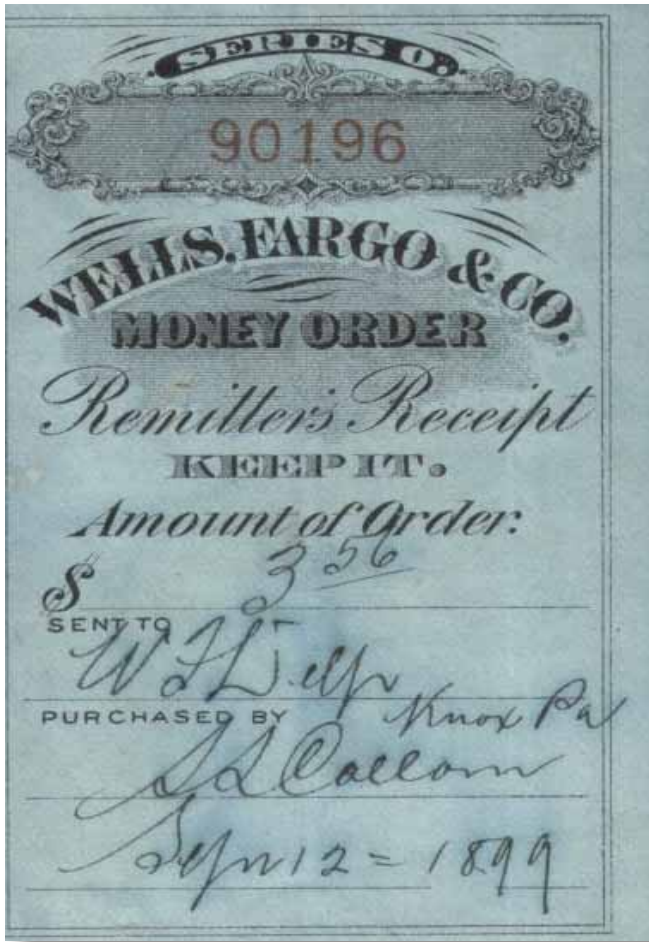 SERIES O.
90196
WELLS, FARGO & CO.
MONEY ORDER
Remitter's Receipt
KEEP IT.
Amount of Order:
$ 3 56
SENT TO
W
PURCHASED BY Knox Pa
S L Collom
Sep 12 = 1899